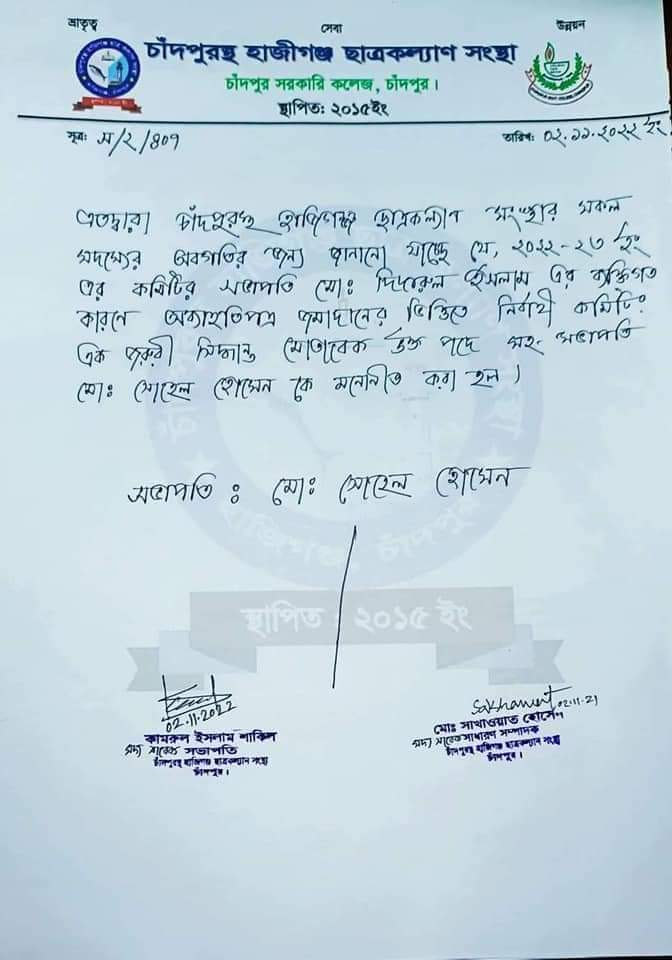 ভ্রাতৃত্ব সেবা উন্নয়ন
চাঁদপুরস্থ হাজীগঞ্জ ছাত্রকল্যাণ সংস্থা
চাঁদপুর সরকারি কলেজ, চাঁদপুর।
স্থাপিত: ২০১৫ইং
সূত্র: স/২/৪০৭ তারিখ: ০২.১১.২০২২ ইং
এতদ্বারা চাঁদপুরস্থ হাজিগঞ্জ ছাত্রকল্যাণ সংস্থার সকল
সদস্যের অবগতির জন্য জানানো যাচ্ছে যে, ২০২২-২৩ ইং
এর কমিটির সভাপতি মোঃ দিদারুল ইসলাম এর ব্যক্তিগত
কারণে অব্যাহতিপত্র জমাদানের ভিত্তিতে নির্বাহী কমিটির
এক জরুরী সিদ্ধান্ত মোতাবেক উক্ত পদে সহ-সভাপতি
মোঃ সোহেল হোসেন কে মনোনীত করা হল।
সভাপতি : মোঃ সোহেল হোসেন
হাজিগঞ্জ, চাঁদপুর
স্থাপিত : ২০১৫ ইং
02.11.2022
কামরুল ইসলাম শাকিল
সদ্য সাবেক সভাপতি
চাঁদপুরস্থ হাজিগঞ্জ ছাত্রকল্যাণ সংস্থা
চাঁদপুর।
Sakhawat 02.11.21
মোঃ সাখাওয়াত হোসেন
সদ্য সাবেক সাধারণ সম্পাদক
চাঁদপুরস্থ হাজিগঞ্জ ছাত্রকল্যাণ সংস্থা
চাঁদপুর।